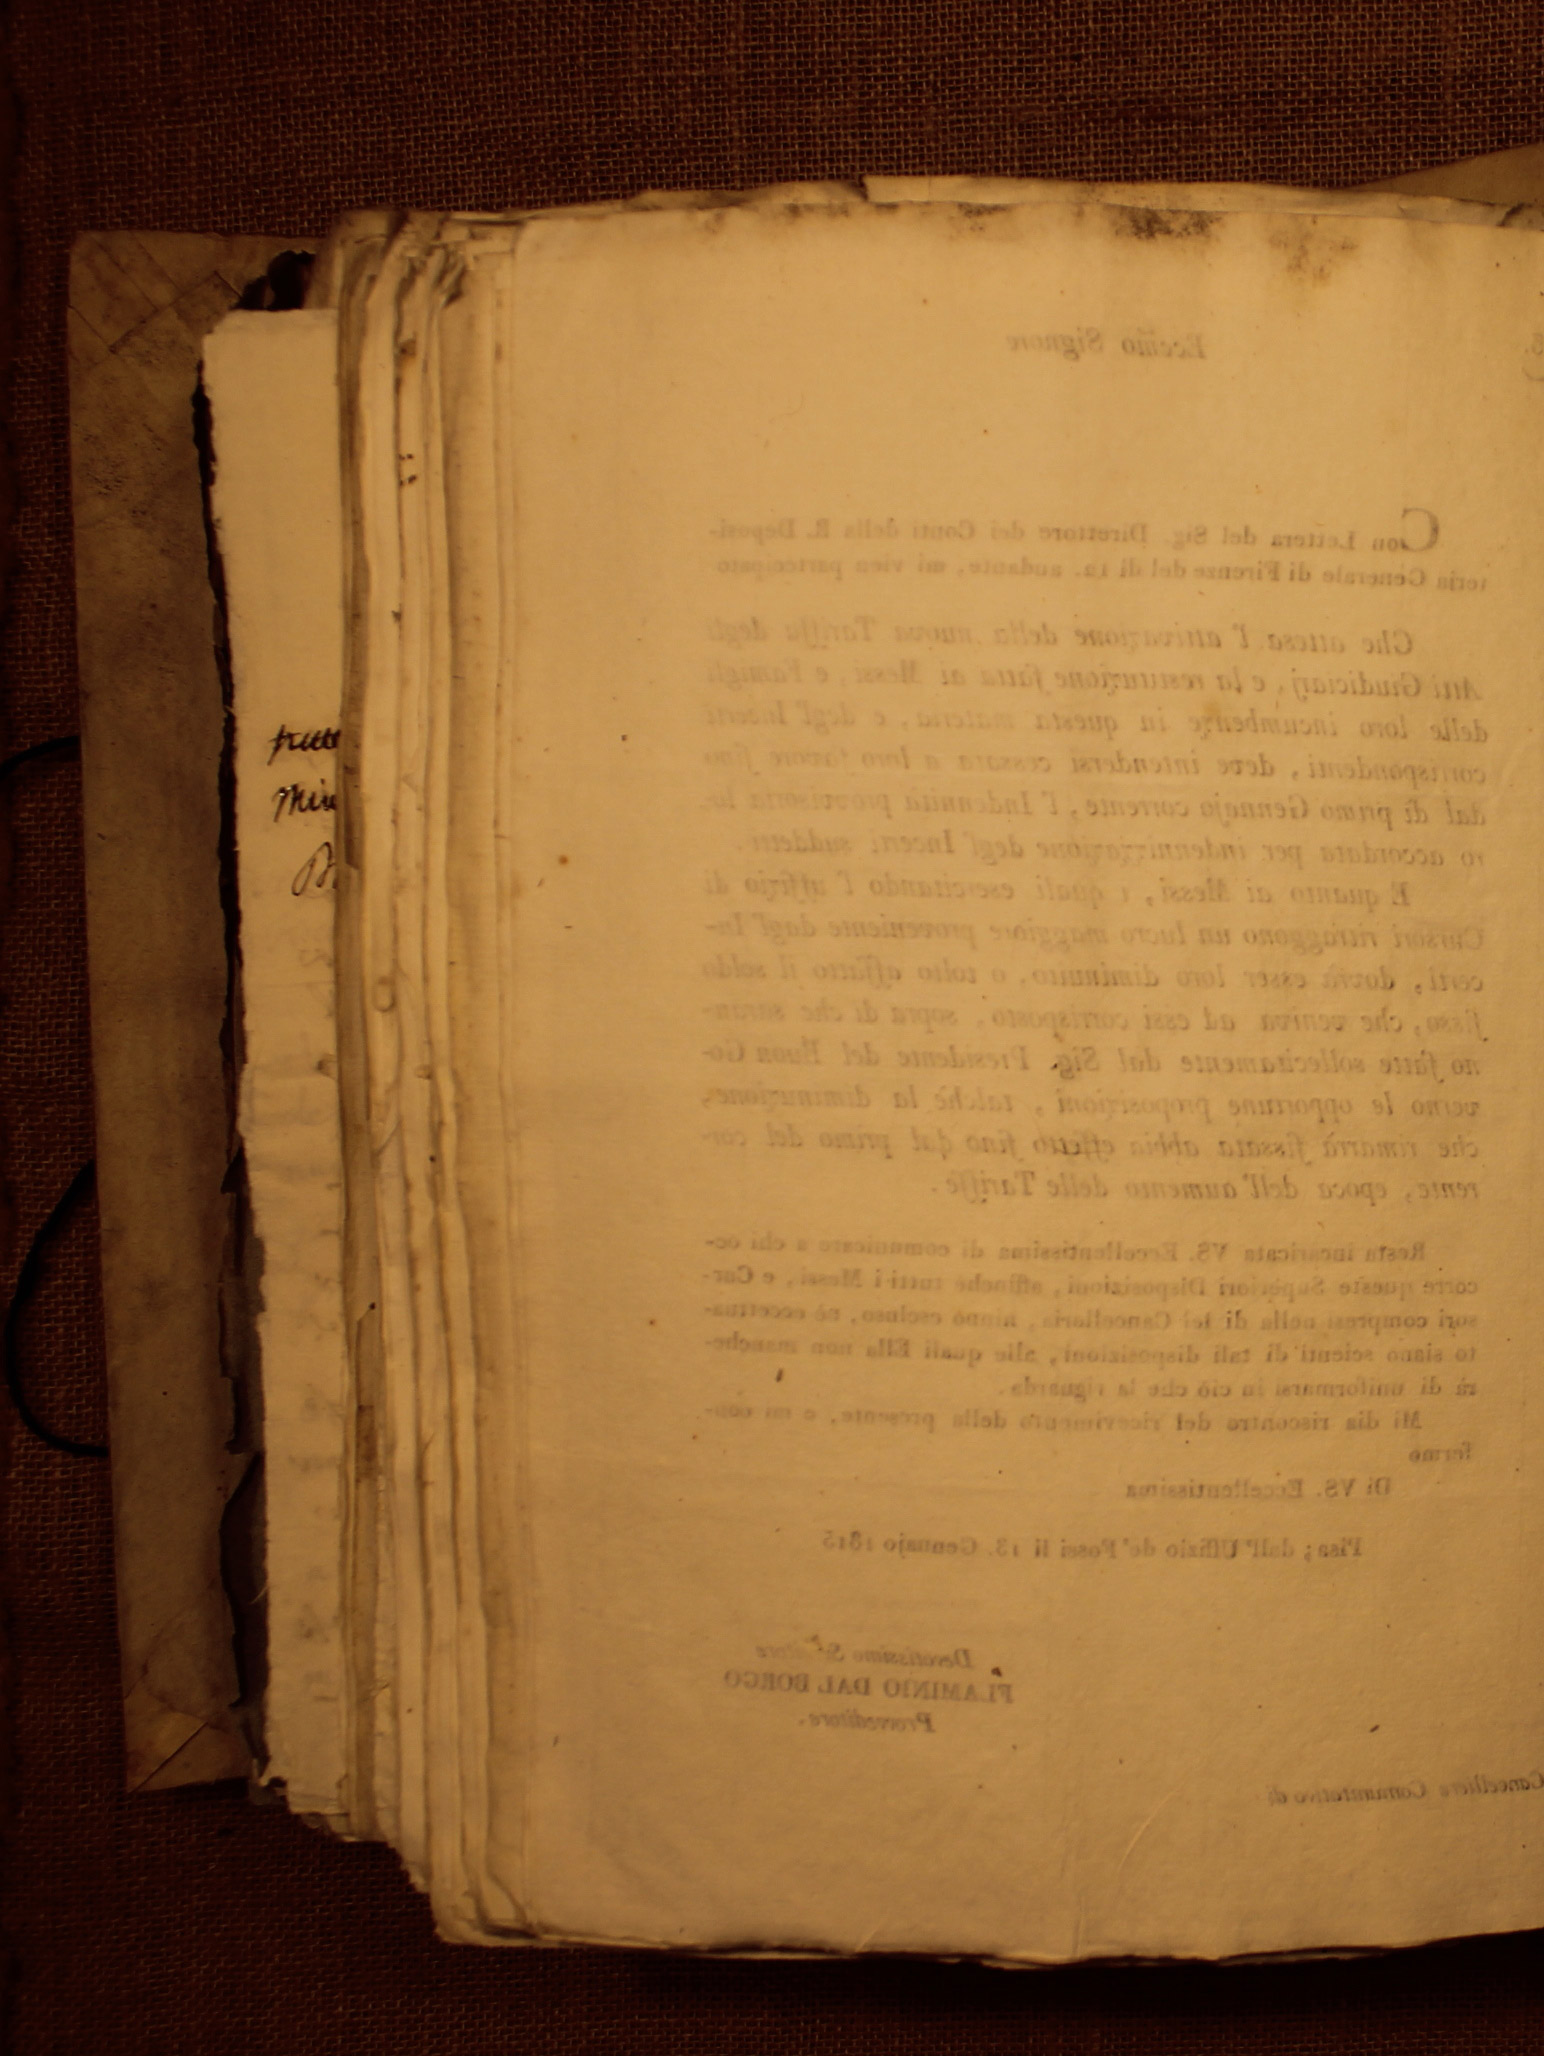 Eccmo Signore
Con Lettera del Sig. Direttore dei Conti della R. Deposi-
teria Generale di Firenze del dì 12. andante, mi vien partecipato
Che attesa l'attivazione della nuova Tariffa degli
Atti Giudiciarj, e la restituzione fatta ai Messi, e Famigli
delle loro incumbenze in questa materia, e degl'Incerti
corrispondenti, deve intendersi cessata a loro favore fino
dal dì primo Gennajo corrente, l'Indennità provvisoria lo-
ro accordata per indennizzazione degl'Incerti suddetti.
E quanto ai Messi, i quali esercitando l'uffizio di
Cursori ritraggono un lucro maggiore proveniente dagl'In-
certi, dovrà esser loro diminuto, o tolto affatto il soldo
fisso, che veniva ad essi corrisposto, sopra di che saran-
no fatte sollecitamente dal Sig. Presidente del Buon Go-
verno le opportune proposizioni, talchè la diminuzione,
che rimarrà fissata abbia effetto fino dal primo del cor-
rente, epoca dell'aumento delle Tariffe.
Resta incaricata VS. Eccellentissima di comunicare a chi oc-
corre queste Superiori Disposizioni, affinchè tutti i Messi, e Cur-
sori compresi nella di lei Cancelleria, niuno escluso, nè eccettua-
to siano scienti di tali disposizioni, alle quali Ella non manche-
rà di uniformarsi in ciò che la riguarda.
Mi dia riscontro del ricevimento della presente, e mi con-
fermo
Di VS. Eccellentissima
Pisa; dall'Uffizio de' Fossi li 13. Gennajo 1815
Devotissimo
FLAMINIO DAL BORGO
Provveditore.
Cancelliere Comunitativo di